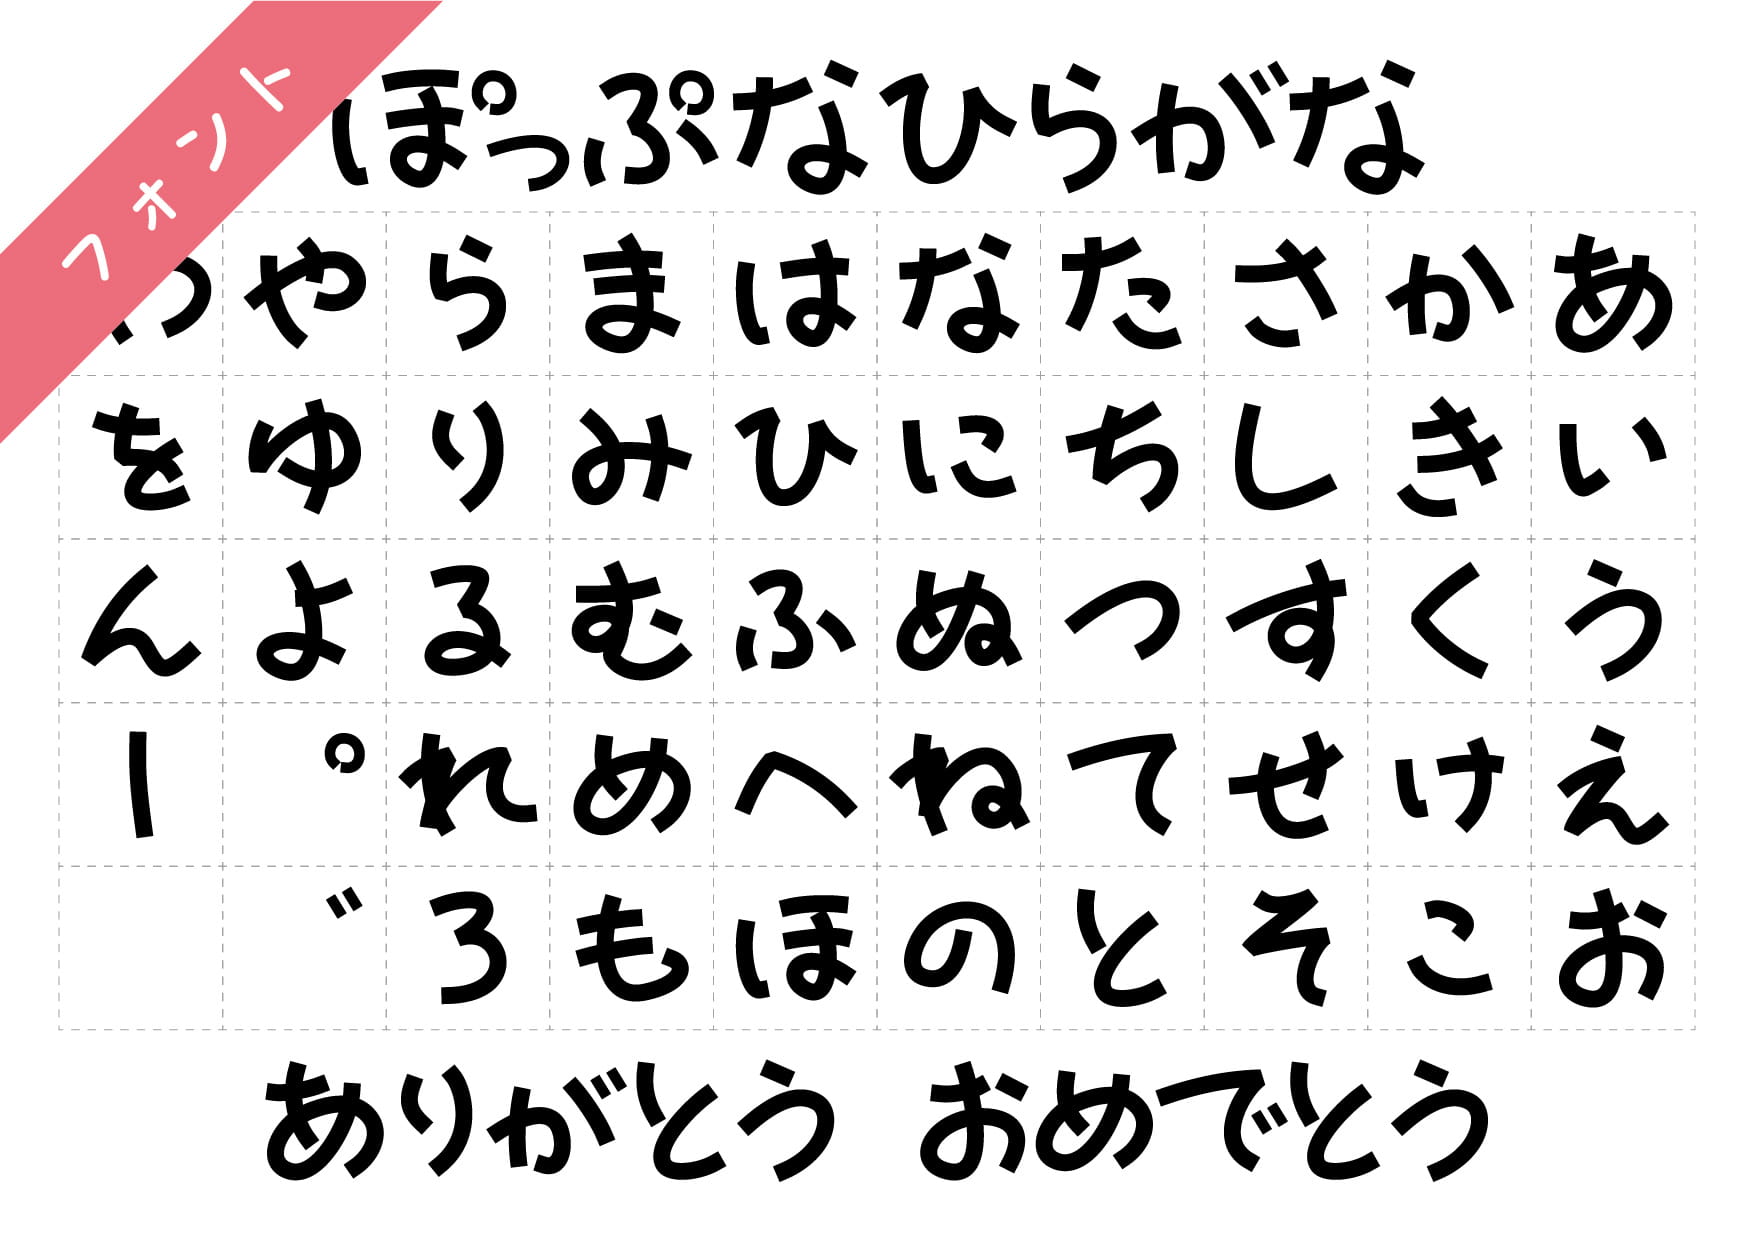 フォント
ぽっぷなひらがな
わ や ら ま は な た さ か あ
を ゆ り み ひ に ち し き い
ん よ る む ふ ぬ つ す く う
ー ゜ れ め へ ね て せ け え
゛ ろ も ほ の と そ こ お
ありがとう おめでとう